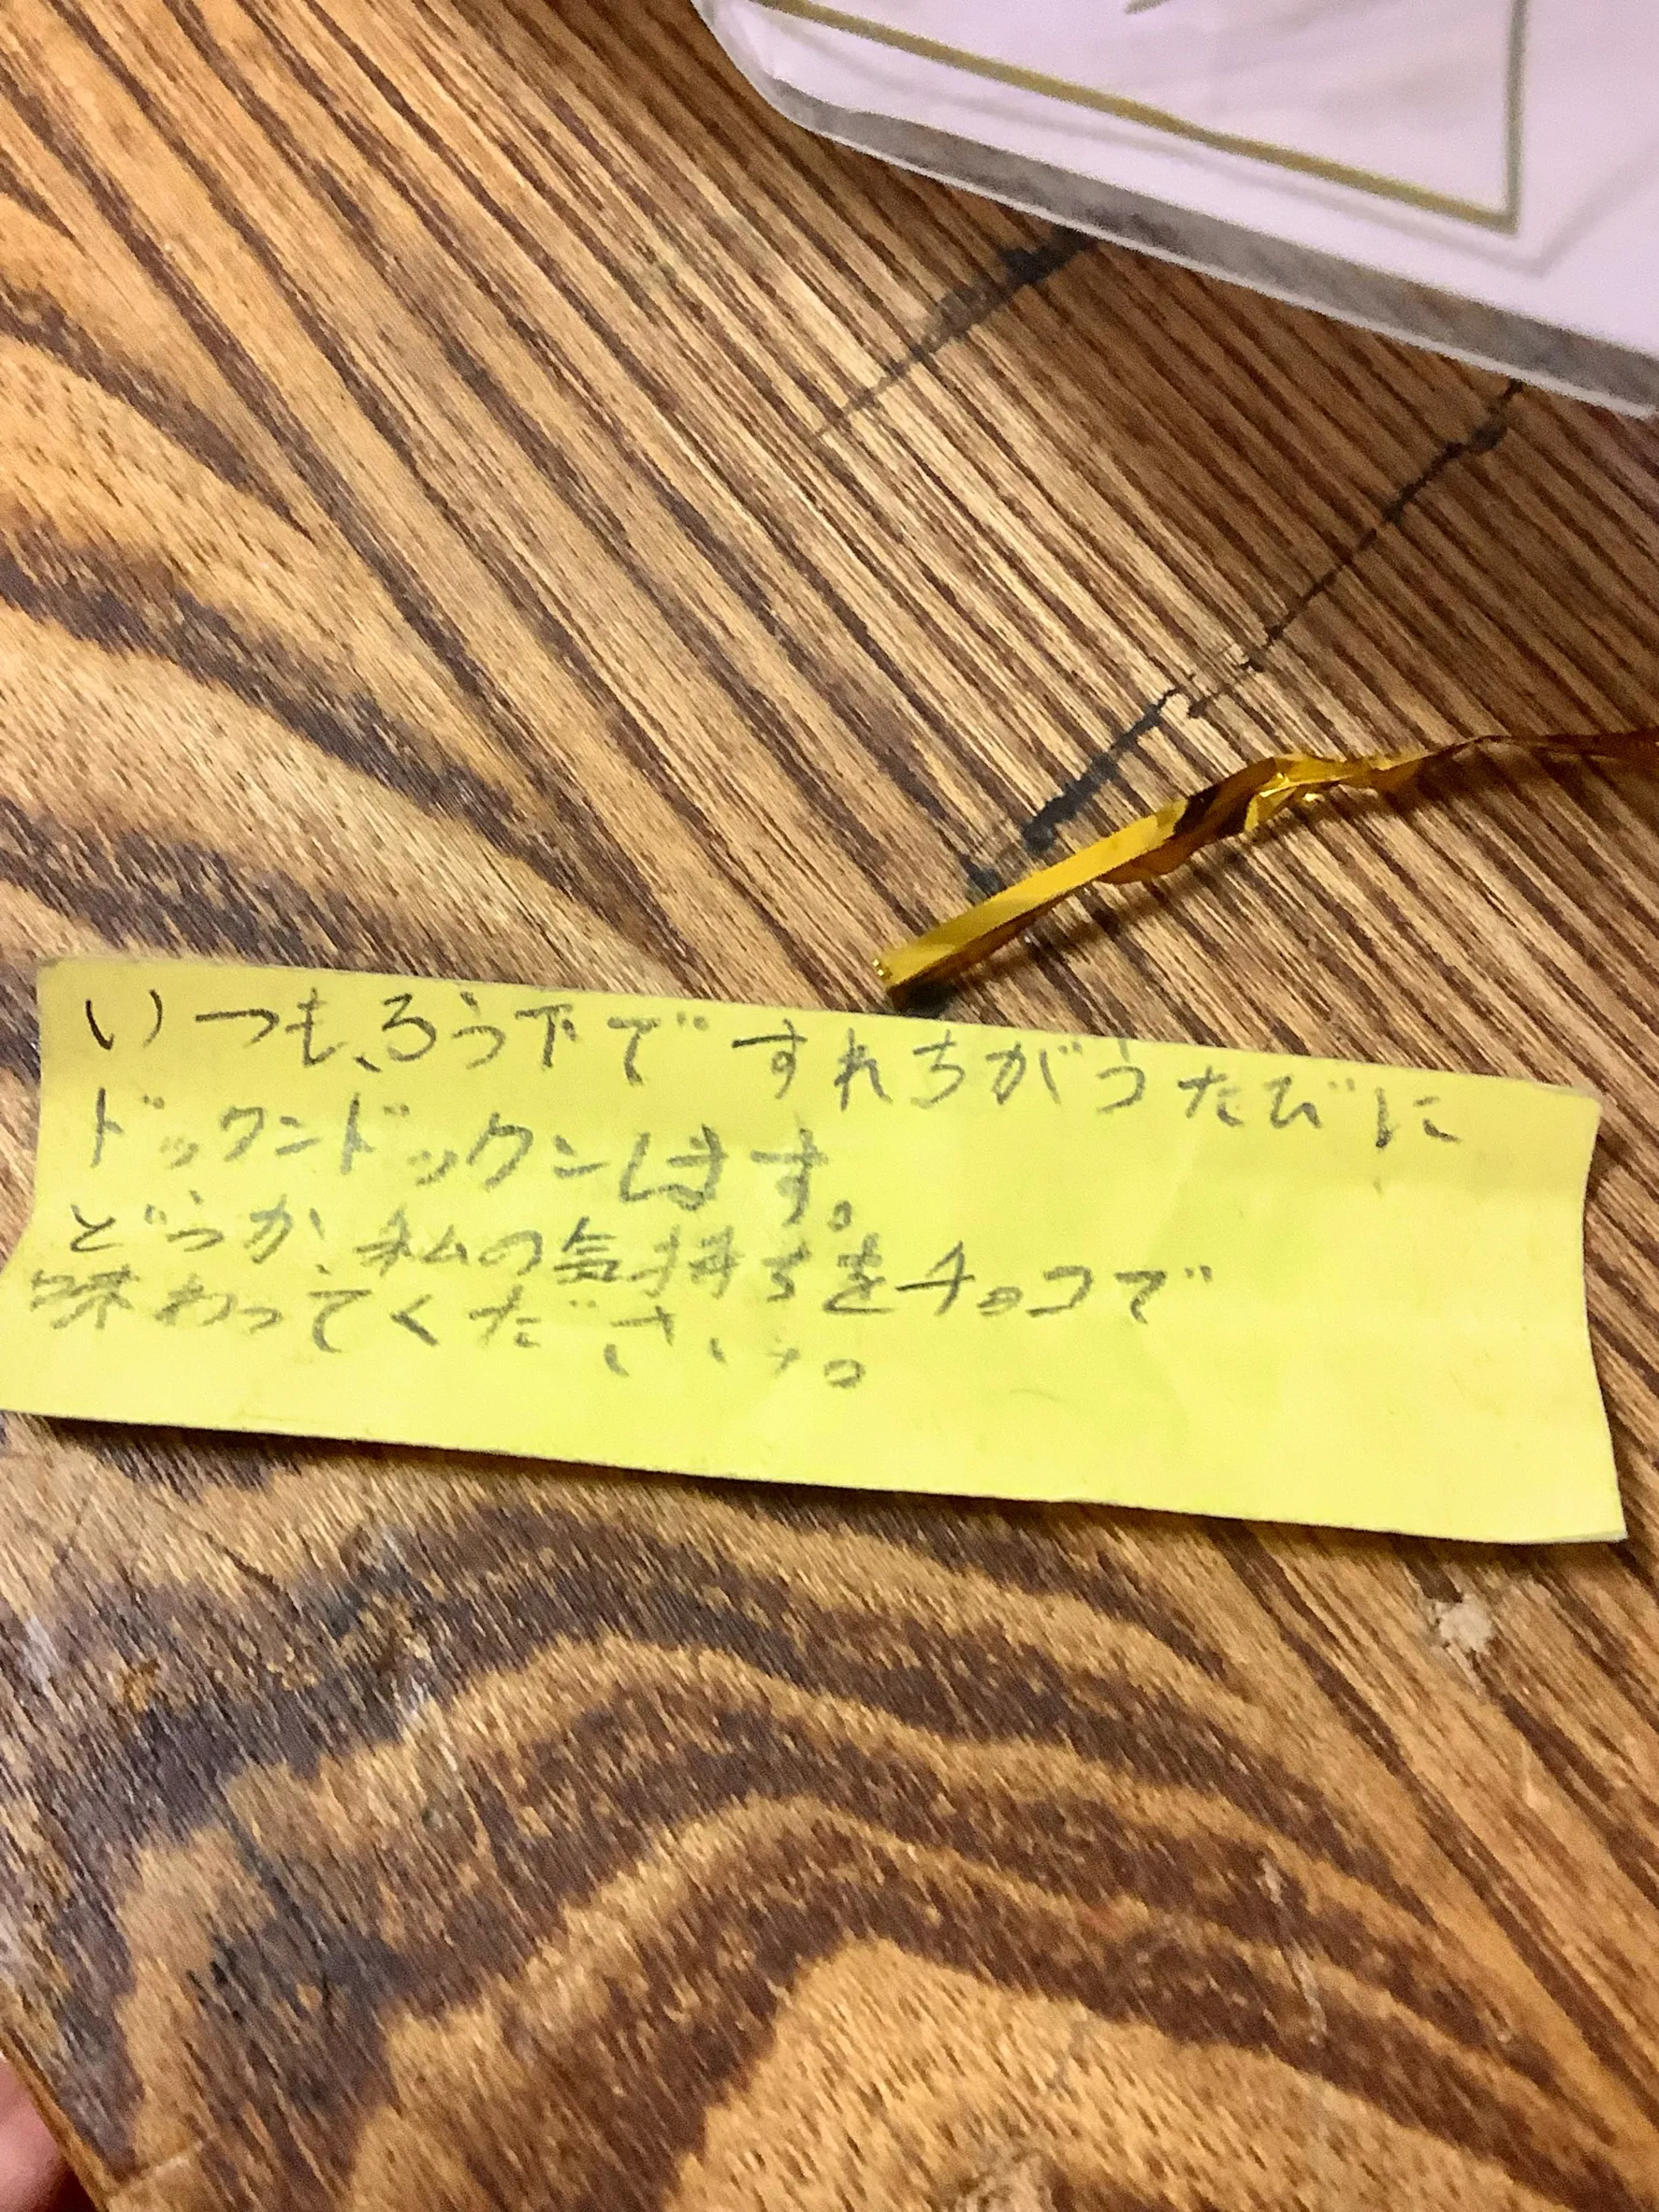 いつも、ろう下ですれちがうたびに
ドックンドックンします。
どうか、私の気持ちをチョコで
味わってください。